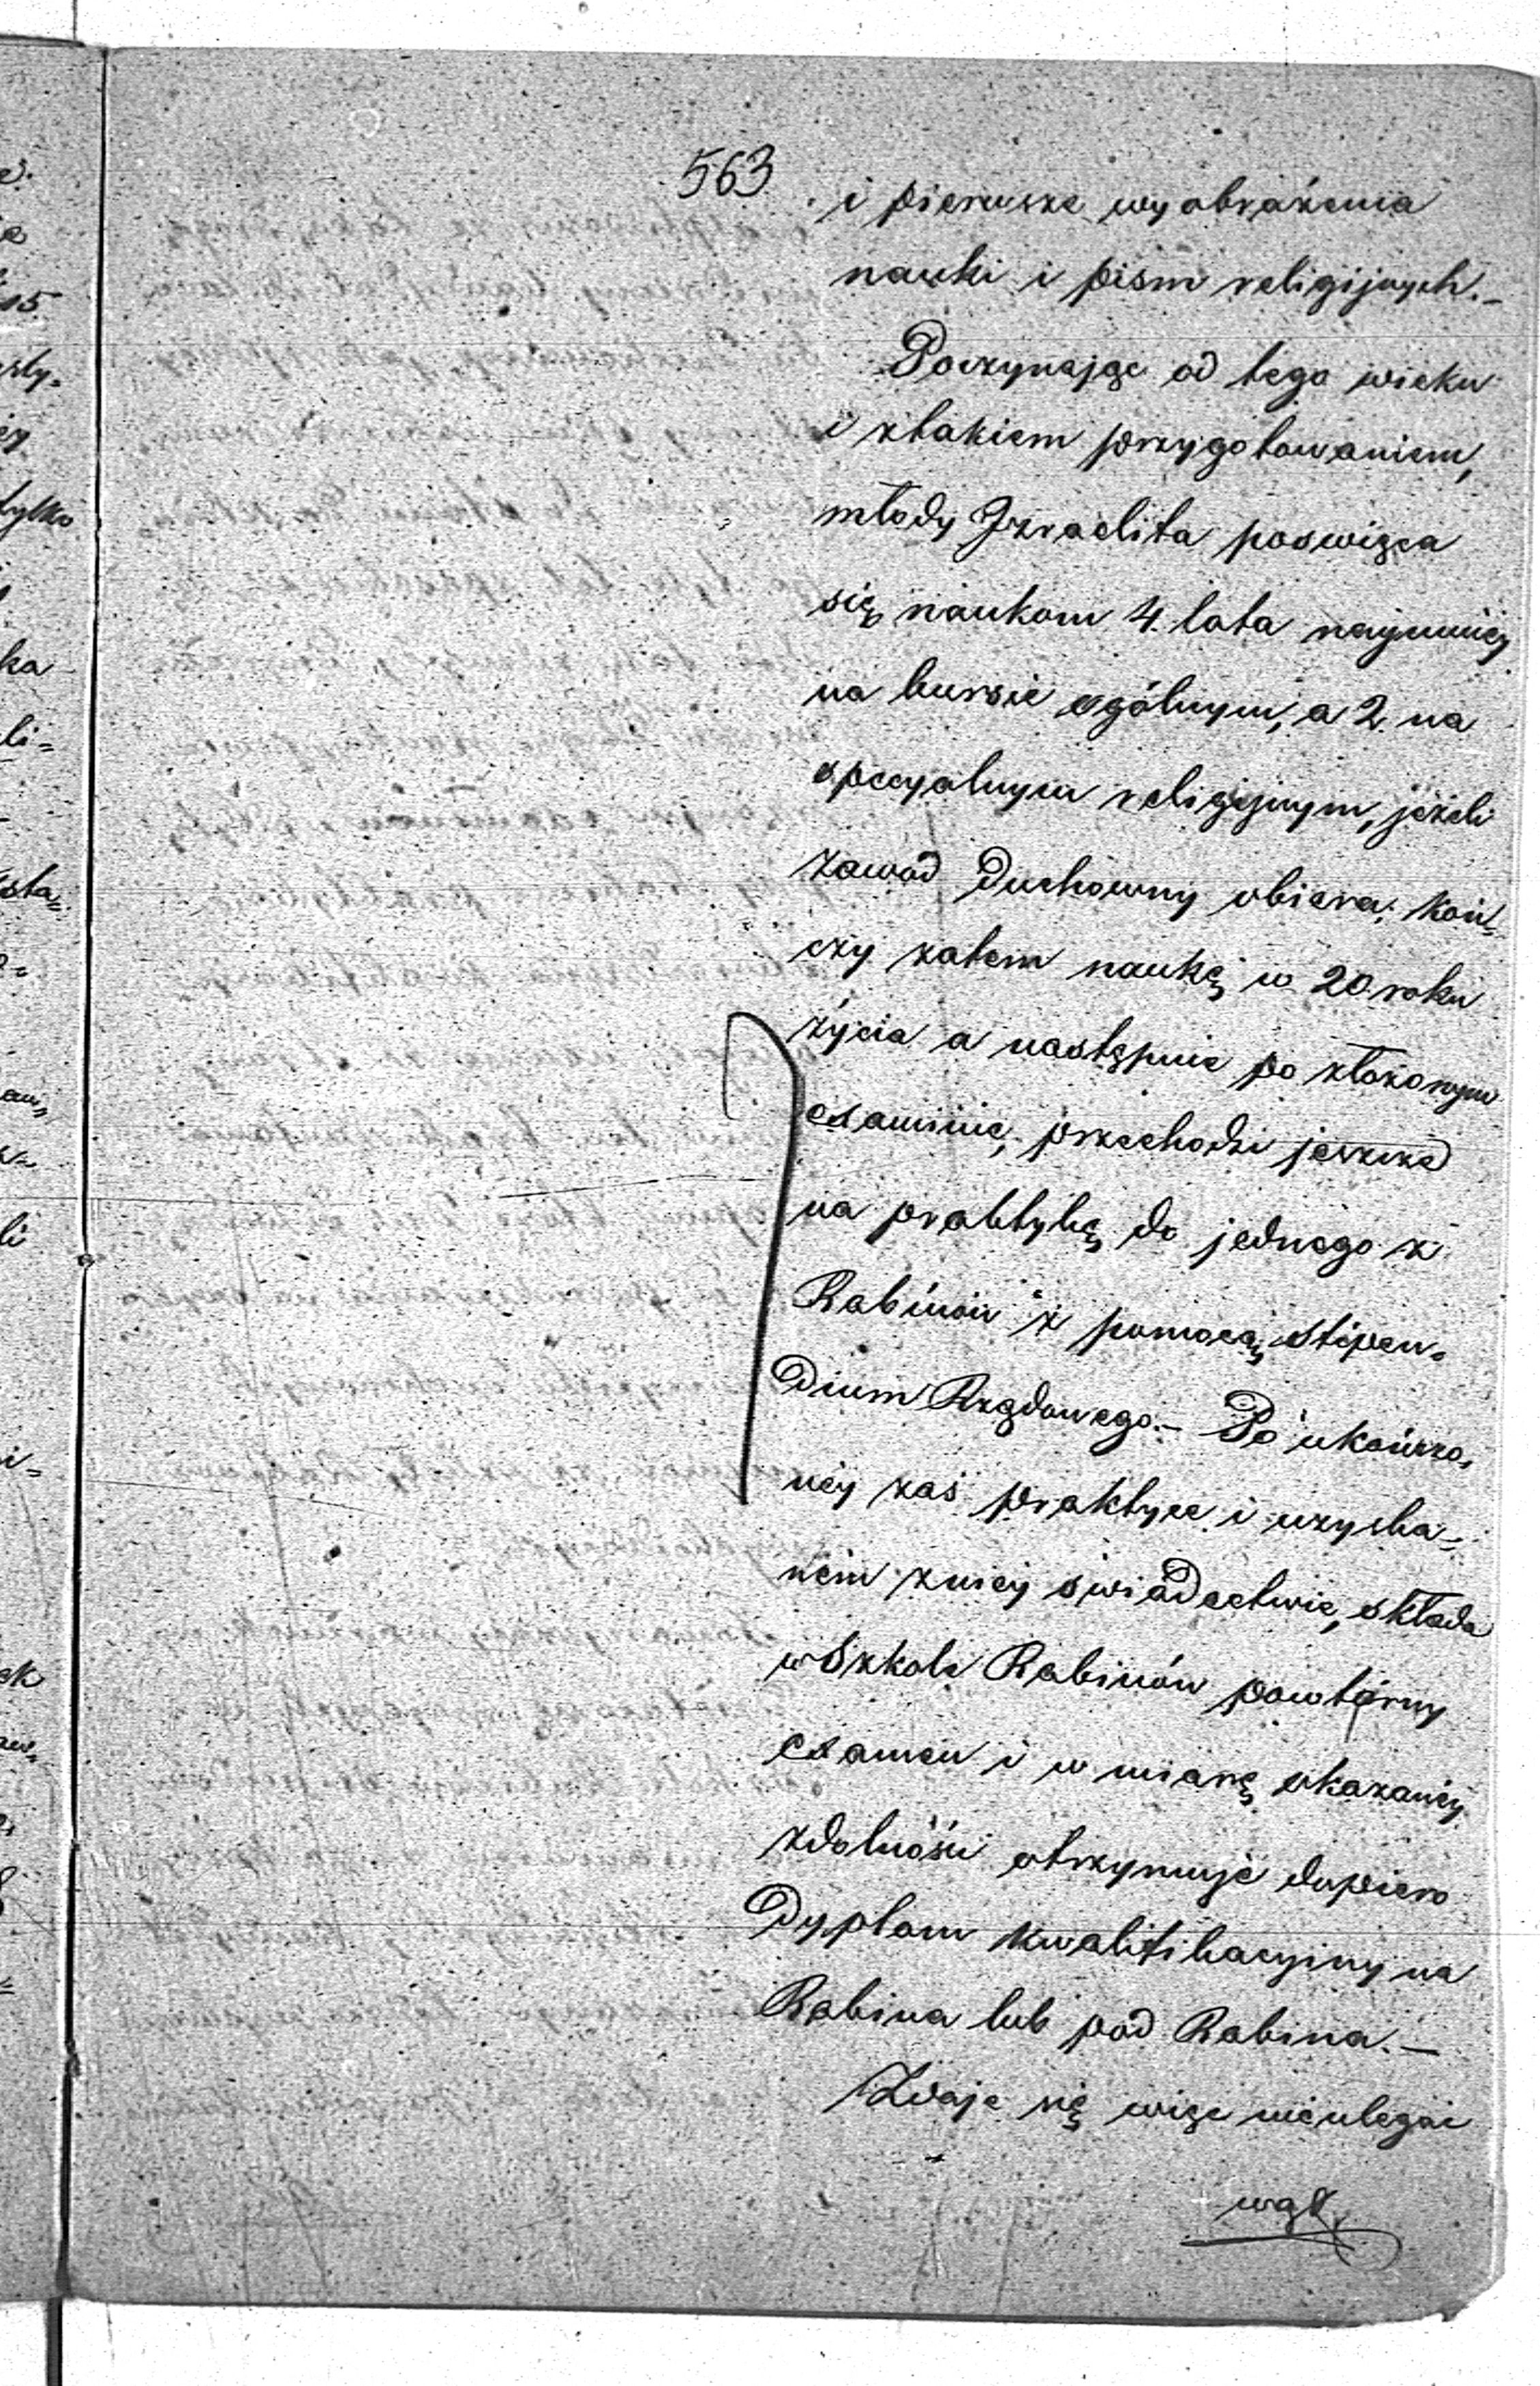 563
i pierwsze wyobrażenia
nauki i pism religijnych.-
Poczynając od tego wieku
i ztakiem przygotowaniem,
młody Izraelita poswięca
się naukom 4. lata naymniéy
na kursie ogólnym, a 2. na
specyalnym religijnym, jeżeli
zawód Duchowny obiera; koń„
czy zatem naukę w 20 roku
życia a następnie po złożonym
examinie, przechodzi jeszcze
na praktykę do jednego z
Rabinów z pomocą stipen„
dium Rządowego.- Po ukończo„
néy zaś praktyce i uzyska„
ném zniéy świadectwie, składa
w Szkole Rabinów powtórny
examen i w miarę okazanéy
zdolności otrzymuje dopiero
Dyplom kwalifikacyiny na
Rabina lub pod Rabina.-
Zdaje się więc nieulegać
wąt„
ka
li=
tylko
li